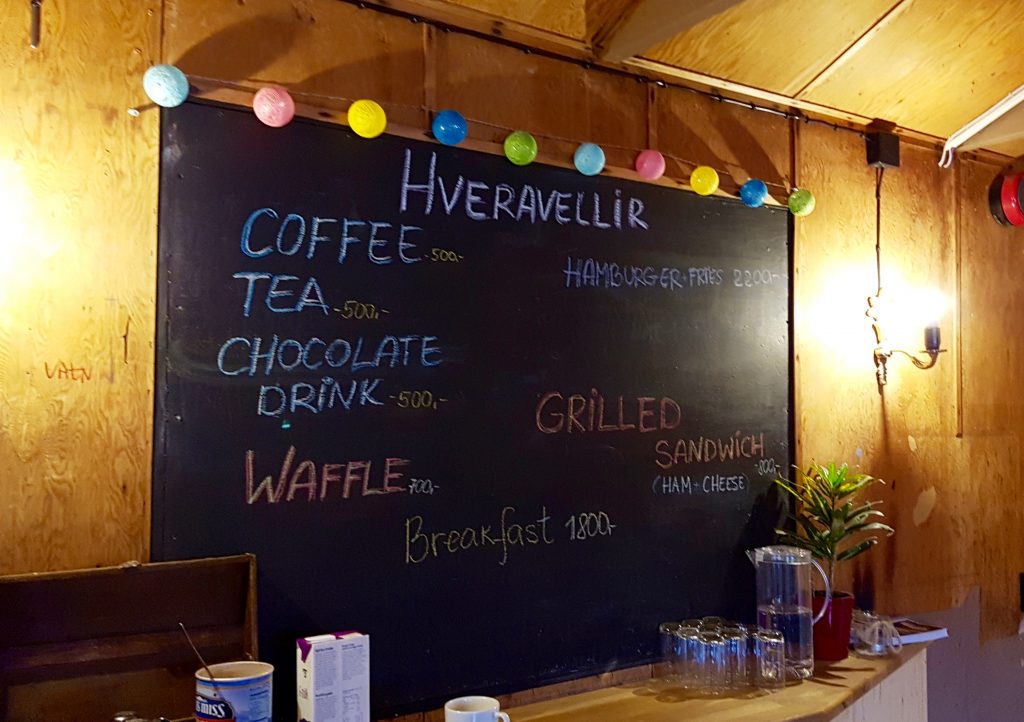 HVERAVELLIR
COFFEE -500,-
TEA -500,-
CHOCOLATE
DRINK -500,-
WAFFLE 700,-
Breakfast 1800,-
HAMBURGER + FRIES 2200,-
GRILLED
SANDWICH
-800,-
(HAM + CHEESE)
VATN
MISS